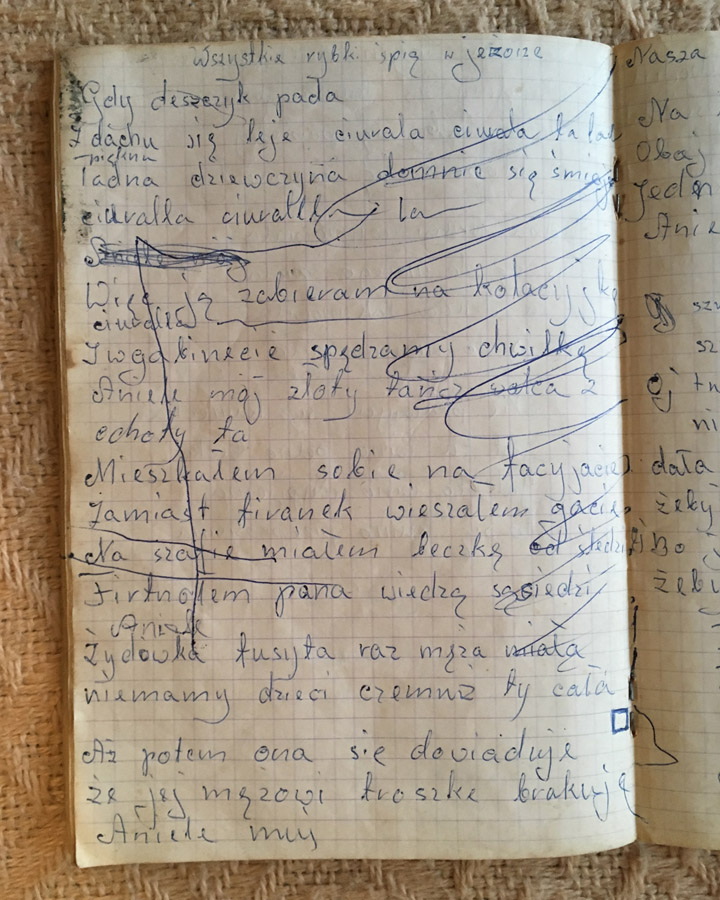 Wszystkie rybki śpią w jeziorze
Gdy deszczyk pada
Z dachu się leje ciurala ciurala la la
piękna
ładna dziewczyna domnie się śmieje
ciuralla ciuralla la
Więc ją zabieram na kolacyjkę
ciuralla
I w gabinecie spędzamy chwilkę
Aniele mój złoty tańcz walca z
ochoty ta
Mieszkałem sobie na
Zamiast firanek wieszałem gacie
Na szafie miałem beczkę od śledzi
pana wiedzą sąsiedzi
Aniele
Żydówka łusyta raz męża miała
niemamy dzieci czemuż ty cała
Aż potem ona się doviaduje
że jej mężowi troszke brakuję
Aniele muj
Nasza
Na
Obaj
Jeden
Anie
szu
sz
Oj tn
ni
dała
żeby
Bo
żeby